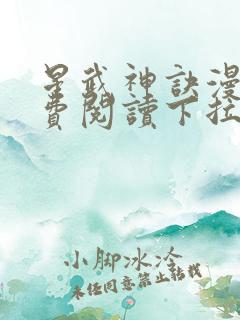 星武神訣漫
費閱讀下拉
小腳冰冷
未经同意禁止转载